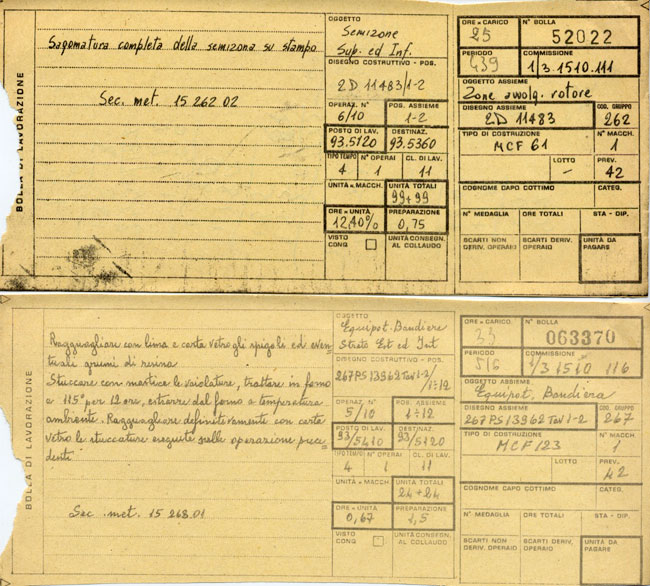 BOLLA DI LAVORAZIONE
Sagomatura completa della semizona su stampo
Sec. met. 15 262 02
OGGETTO
Semizone
Sup. ed Inf.
DISEGNO COSTRUTTIVO - POS.
2D 11483/1-2
OPERAZ. N° POS. ASSIEME
6/10 1-2
POSTO DI LAV. DESTINAZ.
93.5120 93.5360
TIPO TEMPO N° OPERAI CL. DI LAV.
4 1 11
UNITÀ=MACCH. UNITÀ TOTALI
99+99
ORE=UNITÀ PREPARAZIONE
12,40% 0,75
VISTO CONQ. UNITÀ CONSEGN. AL COLLAUDO
ORE=CARICO N° BOLLA
25 52022
PERIODO COMMISSIONE
439 1/3.1510.111
OGGETTO ASSIEME
Zone avvolg. rotore
DISEGNO ASSIEME COD. GRUPPO
2D 11483 262
TIPO DI COSTRUZIONE N° MACCH.
MCF 61 1
LOTTO PREV.
– 42
COGNOME CAPO COTTIMO CATEG.
N° MEDAGLIA ORE TOTALI STA - DIP.
SCARTI NON DERIV. OPERAIO SCARTI DERIV. OPERAIO UNITÀ DA PAGARE
BOLLA DI LAVORAZIONE
Ragguagliare con lima e carta vetro gli spigoli ed even
tuali grumi di resina
Stuccare con mastice le soiolature, trattare in forno
a 115° per 12 ore, estrarre dal forno a temperatura
ambiente. Ragguagliare definitivamente con carta
vetro le stuccature eseguite nelle operazione prece
denti
Sec. met. 15 268.01
OGGETTO
Equipot. Bandiere
Strato Est ed Int
DISEGNO COSTRUTTIVO - POS.
267PS13962 Tav 1-2/
1÷12
OPERAZ. N° POS ASSIEME
5/10 1÷12
POSTO DI LAV. DESTINAZ.
93/5410 93/5120
TIPO TEMPO N° OPERAI CL. DI LAV.
4 1 11
UNITÀ=MACCH. UNITÀ TOTALI
24+24
ORE=UNITÀ PREPARAZIONE
0,67 1,5
VISTO CONQ UNITÀ CONSEGN. AL COLLAUDO
ORE=CARICO. N° BOLLA
33 063370
PERIODO COMMISSIONE
516 1/3 1510 116
OGGETTO ASSIEME.
Equipot. Bandiera
DISEGNO ASSIEME COD. GRUPPO
267PS13962 Tav 1-2 267
TIPO DI COSTRUZIONE N° MACCH
MCF 123 1
LOTTO PREV.
42
COGNOME CAPO COTTIMO CATEG.
N° MEDAGLIA ORE TOTALI STA - DIP.
SCARTI NON DERIV. OPERAIO SCARTI DERIV. OPERAIO UNITÀ DA PAGARE